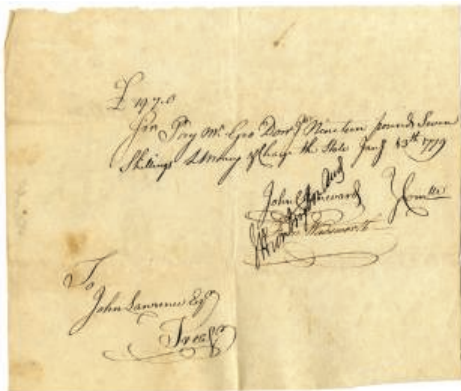 £ 19.7.0
Sir Pay Mr Geo Dow Nineteen pounds Seven
Shillings Money & Charge the State Jany 13th 1779
John Chenevard } Comtte
Wadsworth
To
John Lawrence Esqr
Treasr